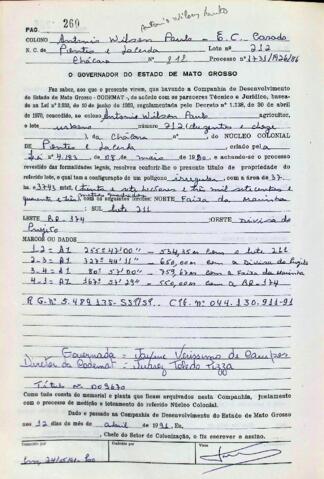 PAO 260
Antonio Wilson Paulo
COLONO Antonio Wilson Paulo - E.C. Casado
N. C. de Pontes e Lacerda Lote nº 212
Chácara Nº 212 Processo nº 1731/1426/86
O GOVERNADOR DO ESTADO DE MATO GROSSO
Faz saber, aos que a presente virem, que havendo a Companhia de Desenvolvimento
do Estado de Mato Grosso - CODEMAT -, de acôrdo com os pareceres Técnico e Jurídico, baseados
na Lei nº 3.030, de 30 de junho de 1969, regulamentada pelo Decreto nº 1.138, de 30 de abril
de 1970, concedido ao colono Antonio Wilson Paulo agricultor,
o lote urbano número 212 (duzentos e doze
) da Chácara do NÚCLEO COLONIAL
de Pontes e Lacerda criado pela
Lei nº 4.193 de 08 de maio 80, e achando-se o processo
revestido das formalidades legais, resolvera conferir-lhe o presente título de propriedade do
referido lote, o qual tem a configuração de um polígono irregular, com a área de 37.
ha 3743 mts2,
com os seguintes limites: NORTE Faixa da Marinha
SUL Lote 211
LESTE BR. 174 OESTE Divisa do
Projeto
MARCOS OU DADOS
1-2 = AZ 255º47'00" - com o Lote 211
2-3 = AZ 327º44'11" - 650,00m com a Divisa do Projeto
3-4 = AZ 80º57'00" - com a Faixa da Marinha
4-1 = AZ 167º37'29" - 550,00m com a BR-174
CPF. Nº 044.130.911-91
Governador - Jayme Verissimo de Campos
Diretor da Codemat
Título Nº 009670
Como tudo consta do memorial e planta que ficam arquivados nesta Companhia, juntamente
com o processo de medição e loteamento do referido Núcleo Colonial.
Dado e passado na Companhia de Desenvolvimento do Estado de Mato Grosso
aos 12 dias do mês de abril de 1991. Eu
, Chefe do Setor de Colonização, o fiz escrever e assino.